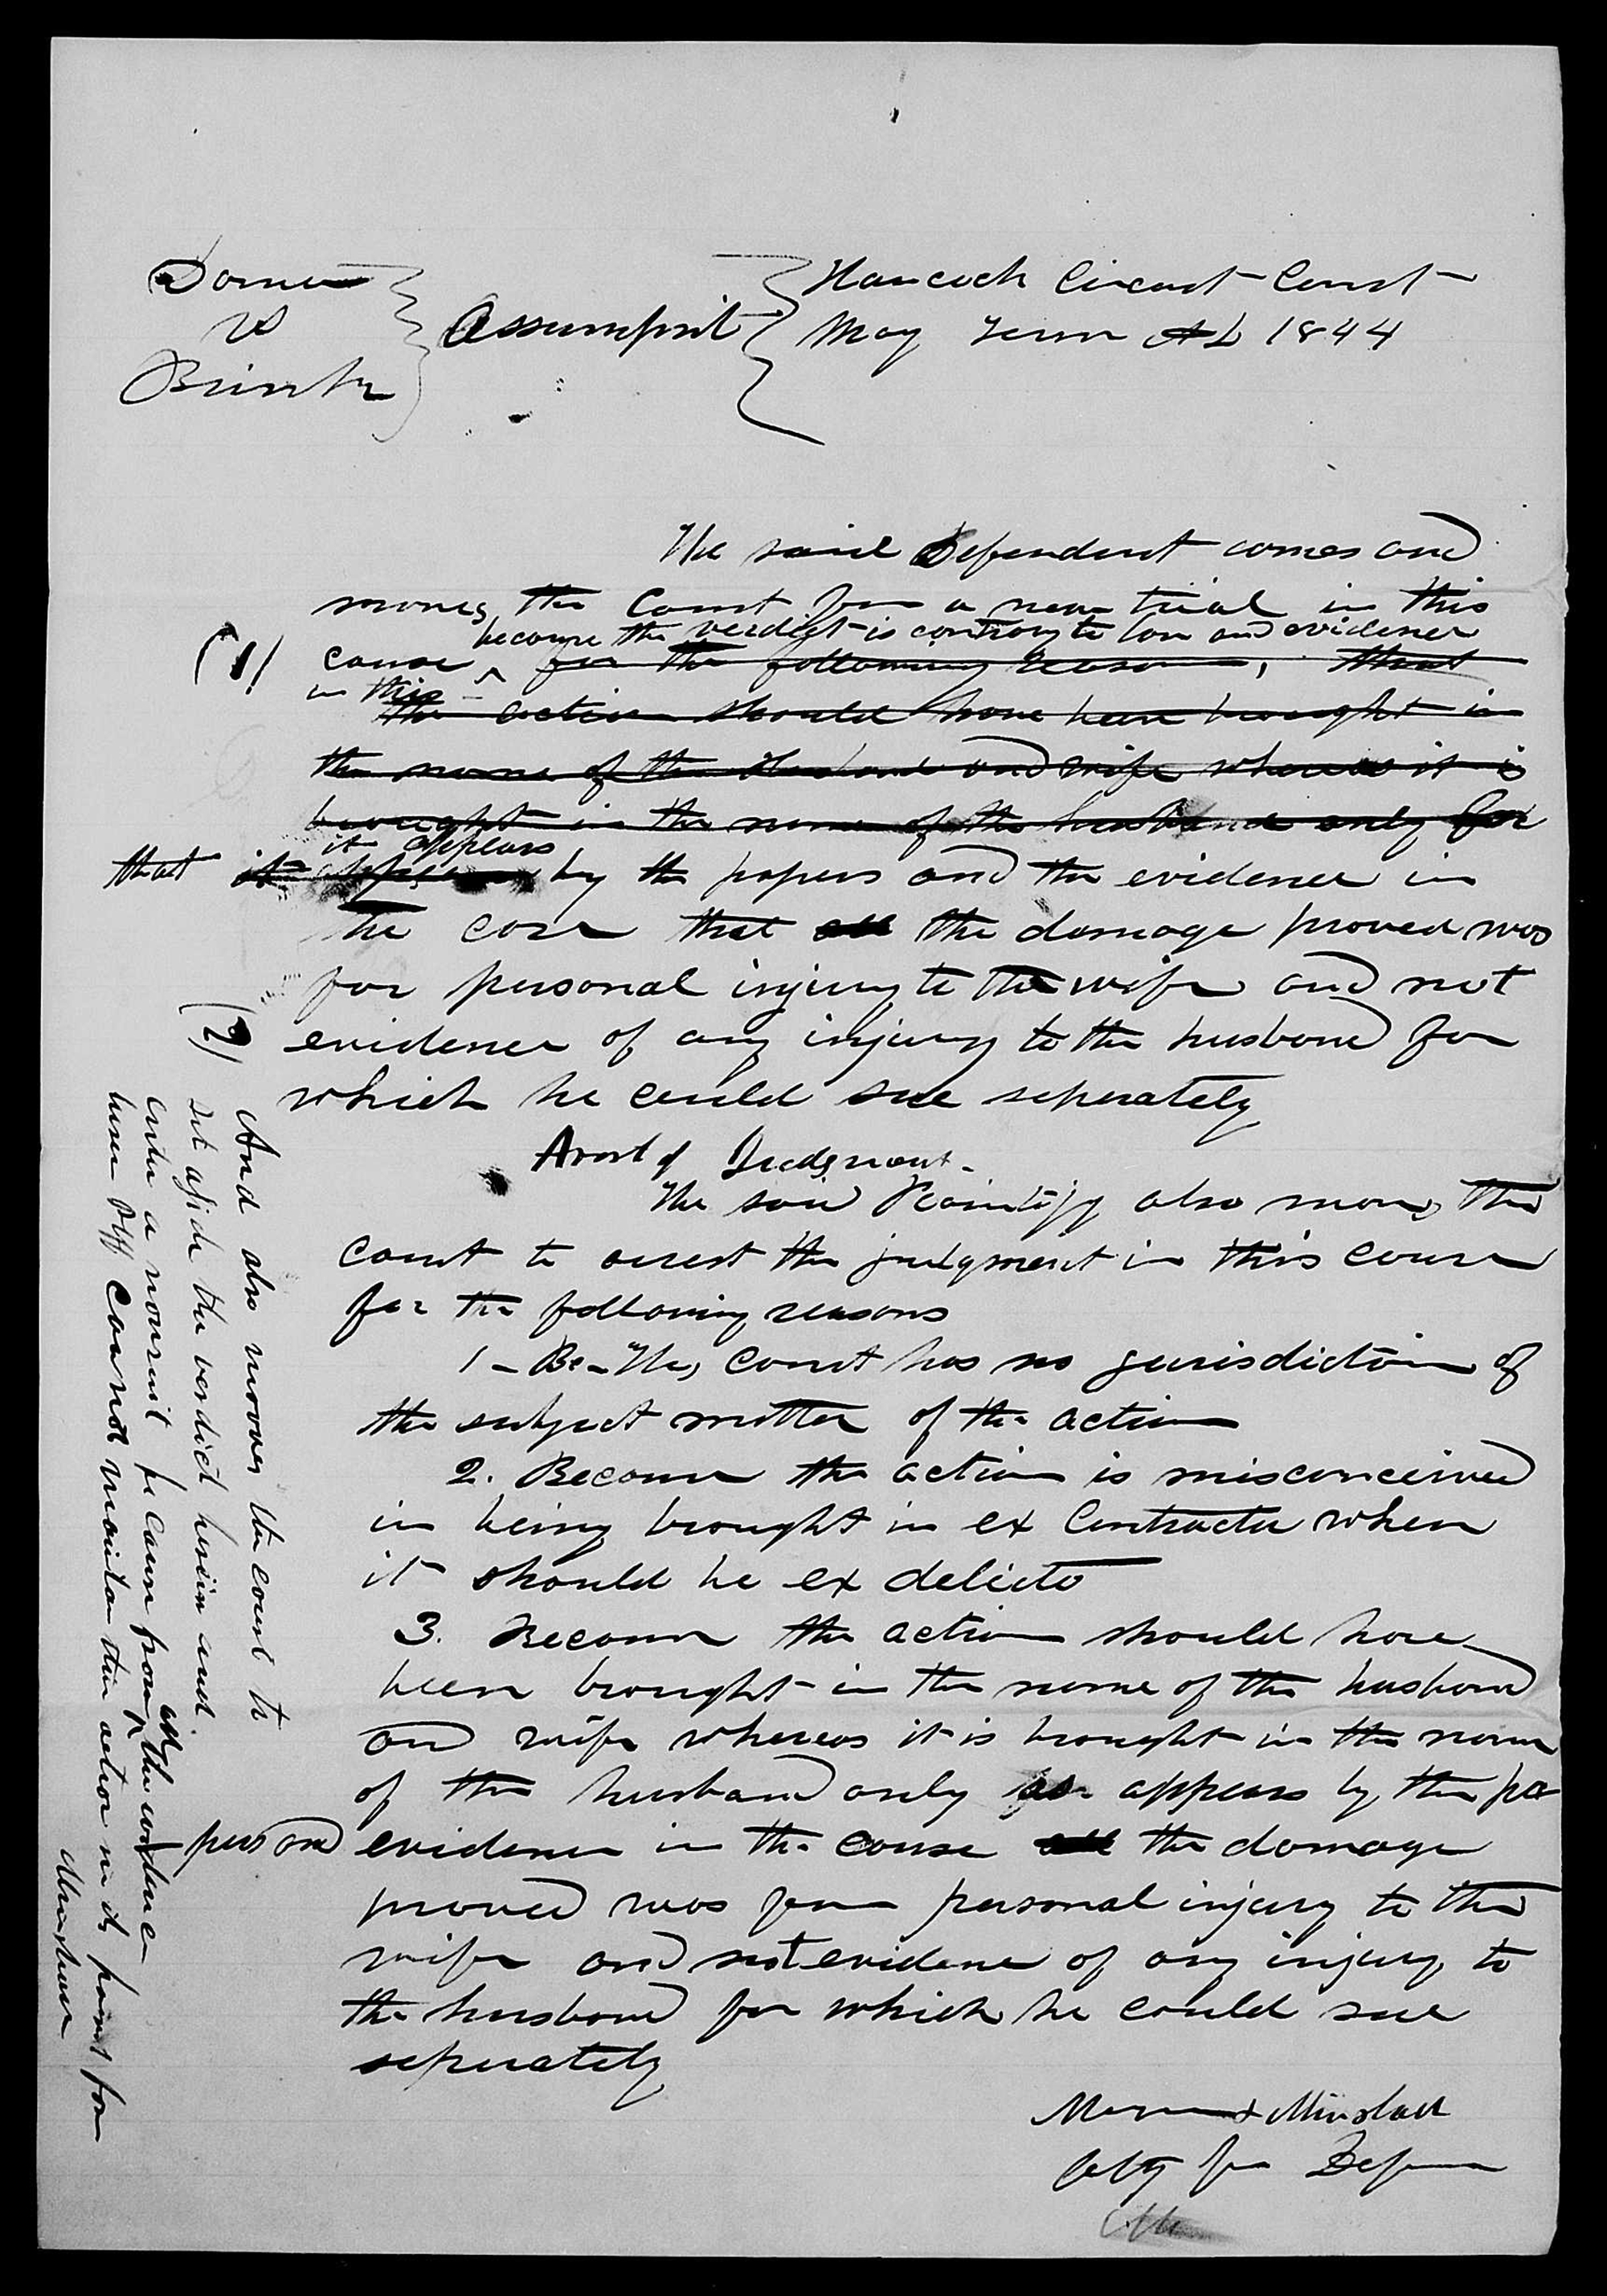 Dana
vs
Brink
Assumpsit
Hancock Circuit Court
May Term AD 1844
The said Defendent comes and
moves the Court for a new trial in this
because the verdict is contrary to law and evidence
(1) cause ^ for the following reason, that
in this
the action should have been brought in
the name of the Husband and wife whereas it is
brought in the name of the husband only for
it appears
that it appears by the papers and the evidence in
the case that all the damage proved was
for personal injury to the wife and not
evidence of any injury to the husband for
which he could sue seperately
(2) And also mooves the court to
set aside the verdict herein and
enter a nonsuit because from the evidence
Pff cannot maintan this action in its form for
Arest of Judgment.
The said Plaintiff also moves the
court to arrest the judgment in this cause
for the following reasons
1 - Be - The court has no jurisdiction of
the subject matter of the action
2. Because the action is misconceived
in being brought in ex Contractu when
it should be ex delicto
3. Because the action should have
been brought in the name of the husband
and wife whereas it is brought in the name
of the husband only as appears by the pa
pers and evidence in the cause all the damage
proved was for personal injury to the
wife and not evidence of any injury to
the husband for which he could sue
seperately
& Minshall
Atty for